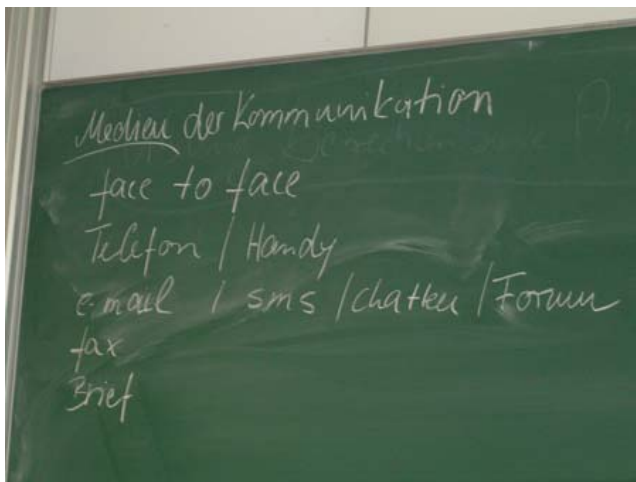 Medien der Kommunikation
face to face
Telefon / Handy
e-mail / sms / chatten / Forum
fax
Brief